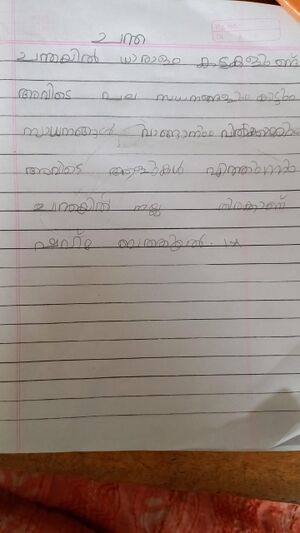 ചന്ത
ചന്തയിൽ ധാരാളം കടകളുണ്ട്
അവിടെ പല സാധനങ്ങളും കിട്ടും
സാധനങ്ങൾ വാങ്ങാനും വിൽക്കാനും
അവിടെ ആളുകൾ എത്താറുണ്ട്
ചന്തയിൽ നല്ല തിരക്കാണ്